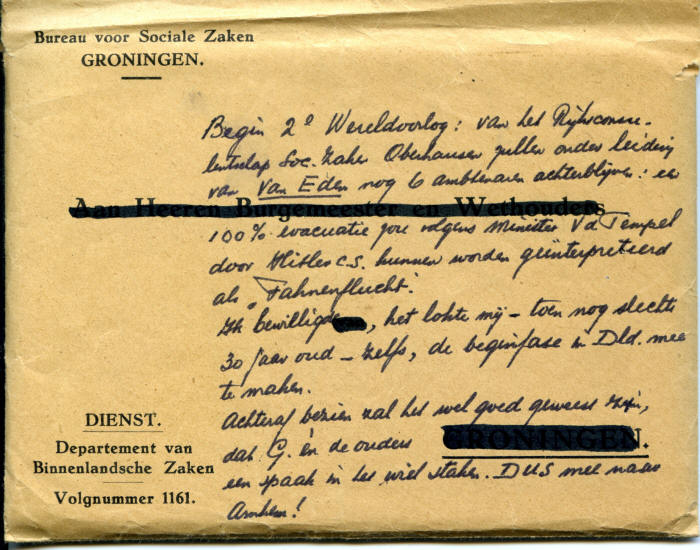 Bureau voor Sociale Zaken
GRONINGEN.
Begin 2e Wereldoorlog: van het Rijksconsu-
lentschap Soc. Zaken Oberhausen zullen onder leiding
van Van Eden nog 6 ambtenaren achterblijven: een
Aan Heeren Burgemeester en Wethouders
100% evacuatie zou volgens Minister Vd Tempel
door Hitler c.s. kunnen worden geïnterpreteerd
als "Fahnenflucht".
Ik bewilligde, het lokte mij - toen nog slechts
30 jaar oud - zelfs, de beginfase in Dld. mee
te maken.
Achteraf bezien zal het wel goed geweest zijn,
dat G. én de ouders
GRONINGEN.
een spaak in het wiel staken. DUS mee naar
Arnhem!
DIENST.
Departement van
Binnenlandsche Zaken
Volgnummer 1161.